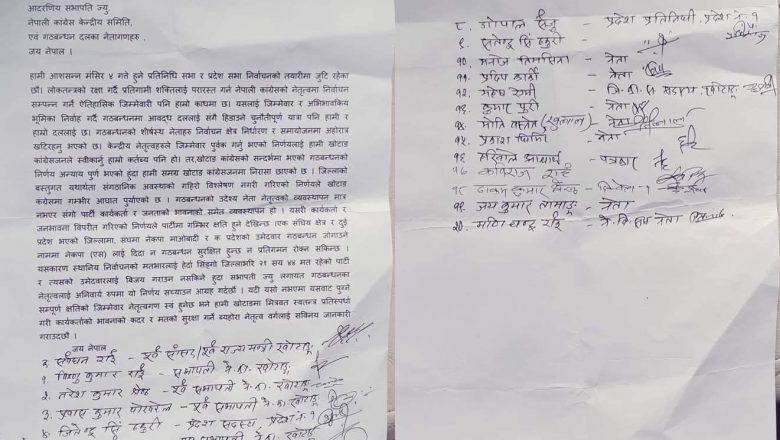 आदरणिय सभापति ज्यु,
नेपाली कांग्रेस केन्द्रिय समिति,
एवं गठबन्धन दलका नेतागणहरु ,
जय नेपाल ।
हामी आशसन्न मंसिर ४ गते हुने प्रतिनिधि सभा र प्रदेश सभा निर्वाचनको तयारीमा जुटि रहेका
छौं। लोकतन्त्रको रक्षा गर्दै प्रतिगामी शक्तिलाई परास्त गर्न नेपाली कांग्रेसको नेतृत्वमा निर्वाचन
सम्पन्न गर्ने ऐतिहासिक जिम्मेवारी पनि हाम्रो काधमा छ। यसलाई जिम्मेवार र अभिभावकिय
भूमिका निर्वाह गर्दै गठबन्धनमा आवद्ध दललाई संगै हिडाउने चुनौतीपूर्ण यात्रा पनि हामी र
हाम्रो दललाई छ। गठबन्धनको शीर्षस्थ नेताहरु निर्वाचन क्षेत्र निर्धारण र समायोजनमा अहोरात्र
खटिरहनु भएको छ। केन्द्रीय नेतृत्वहरुले जिम्मेवार पुर्वक गर्नु भएको निर्णयलाई हामी खोटाङ
कांग्रेसजनले स्वीकार्नु हाम्रो कर्तव्य पनि हो। तर,खोटाङ कांग्रेसको सन्दर्भमा भएको गठबन्धनको
निर्णय अन्याय पुर्ण भएको हुदा हामी समग्र खोटाङ कांग्रेसजनमा निरासा छाएको छ । जिल्लाको
बस्तुगत यथार्थता संगठानिक अवस्थाको गहिरो विश्लेषण नगरी गरिएको निर्णयले खोटाङ
कंग्रेसमा गम्भीर आघात पुर्याएको छ । गठबन्धनको उदेश्य नेता नेतृत्वको व्यवस्थापन मात्र
नभएर संगो पार्टी कार्यकर्ता र जनताको भावनाको समेत व्यवस्थापन हो । यसरी कार्यकर्ता र
जनभावना विपरीत गरिएको निर्णयले पार्टीमा गम्भिर क्षति हुने देखिन्छ ।एक संघिय क्षेत्र र दुई
प्रदेश भएको जिल्लामा, संघमा नेकपा माओबादी र क प्रदेशको उमेदवार गठबन्धन जोगाउने
नाममा नेकपा (एस) लाई दिदा न गठबन्धन सुरक्षित हुन्छ न प्रतिगमन रोक्न सकिन्छ ।
यसकारण स्थानिय निर्वाचनको मतभारलाई हेर्दा सिंङ्गो जिल्लाभरि २१ सय ४४ मत रहेको पार्टी
र त्यसको उमेदवारलाई बिजय गराउन नसकिने हुदा सभापती ज्यु लगायत गठबन्धनका
नेतृत्वलाई अनिवार्य रुपमा यो निर्णय सच्याउन आग्रह गर्दछौं । यदी यसो नभएमा यसबाट पुग्ने
सम्पूर्ण क्षतिको जिम्मेवार नेतृत्वगण स्वं हुनेछ भने हामी खोटाङमा मित्रवत स्वतन्त्र प्रतिस्पर्धा
गरी कार्यकर्ताको भावनाको कदर र मतको सुरक्षा गर्ने ब्यहोरा नेतृत्व वर्गलाई सविनय जानकारी
गराउदछौं ।
जय नेपाल
राई - पूर्व सांसद/पूर्व राज्य मन्त्री खोटाङ
१. विष्णु कुमार राई - सभापती ने.का. खोटाङ
२. नरेश कुमार श्रेष्ठ - पूर्व सभापती ने.का. खोटाङ
३. प्रकाश कुमार पोखरेल - पूर्व सभापती ने.का. खोटाङ
जितेन्द्र सिं ठकुरी - प्रदेश सदस्य, प्रदेश नं १
सभापती ने.का. खोटाङ
८. गोपाल - प्रदेश प्रतिनिधी, प्रदेश नं १
९. सिं ठकुरी -
१०. मनोज तिमसिना - नेता
११. प्रदिप कार्की - नेता
१२. - ने.का. स सदस्य खोटाङ
१३. कुमार पुरी - नेता
१४. मोति बस्नेत - नेता
१५. प्रकाश घिमिरे - नेता
१६. आचार्य - पत्रकार
१७ कविराज राई
१८ कुमार
१९. जय कुमार तामाङ - नेता
२०. राई - ने.वि.संघ नेता